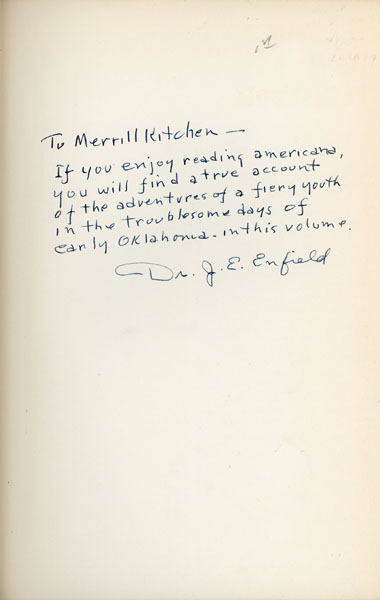 1st
To Merrill Kitchen —
If you enjoy reading americana,
you will find a true account
of the adventures of a fiery youth
in the troublesome days of
early Oklahoma - in this volume.
Dr. J. E. Enfield